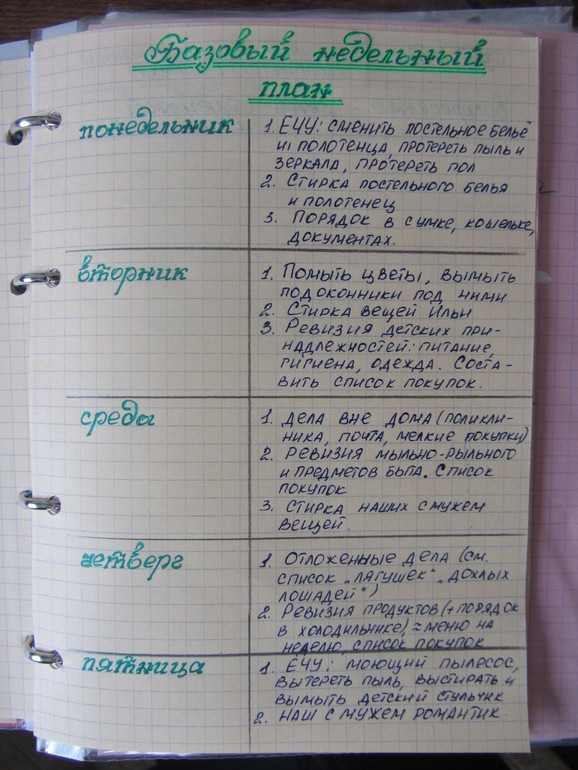 Базовый недельный
план
понедельник
1. ЕЧУ: сменить постельное бельё
и полотенца, протереть пыль и
зеркала, протереть пол
2. Стирка постельного белья
и полотенец
3. Порядок в сумке, кошельке,
документах.
вторник
1. Помыть цветы, вымыть
подоконники под ними
2. Стирка вещей Ильи
3. Ревизия детских при-
надлежностей: питание,
гигиена, одежда. Соста-
вить список покупок.
среда
1. Дела вне дома (поликли-
ника, почта, мелкие покупки)
2. Ревизия мыльно-рыльного
и предметов быта. Список
покупок
3. Стирка наших с мужем
вещей.
четверг
1. Отложенные дела (см.
список „лягушек" „дохлых
лошадей")
2. Ревизия продуктов (+порядок
в холодильнике), = меню на
неделю, список покупок
пятница
1. ЕЧУ: моющий пылесос,
вытереть пыль, выстирать и
вымыть детский стульчик
2. Наш с мужем романтик.